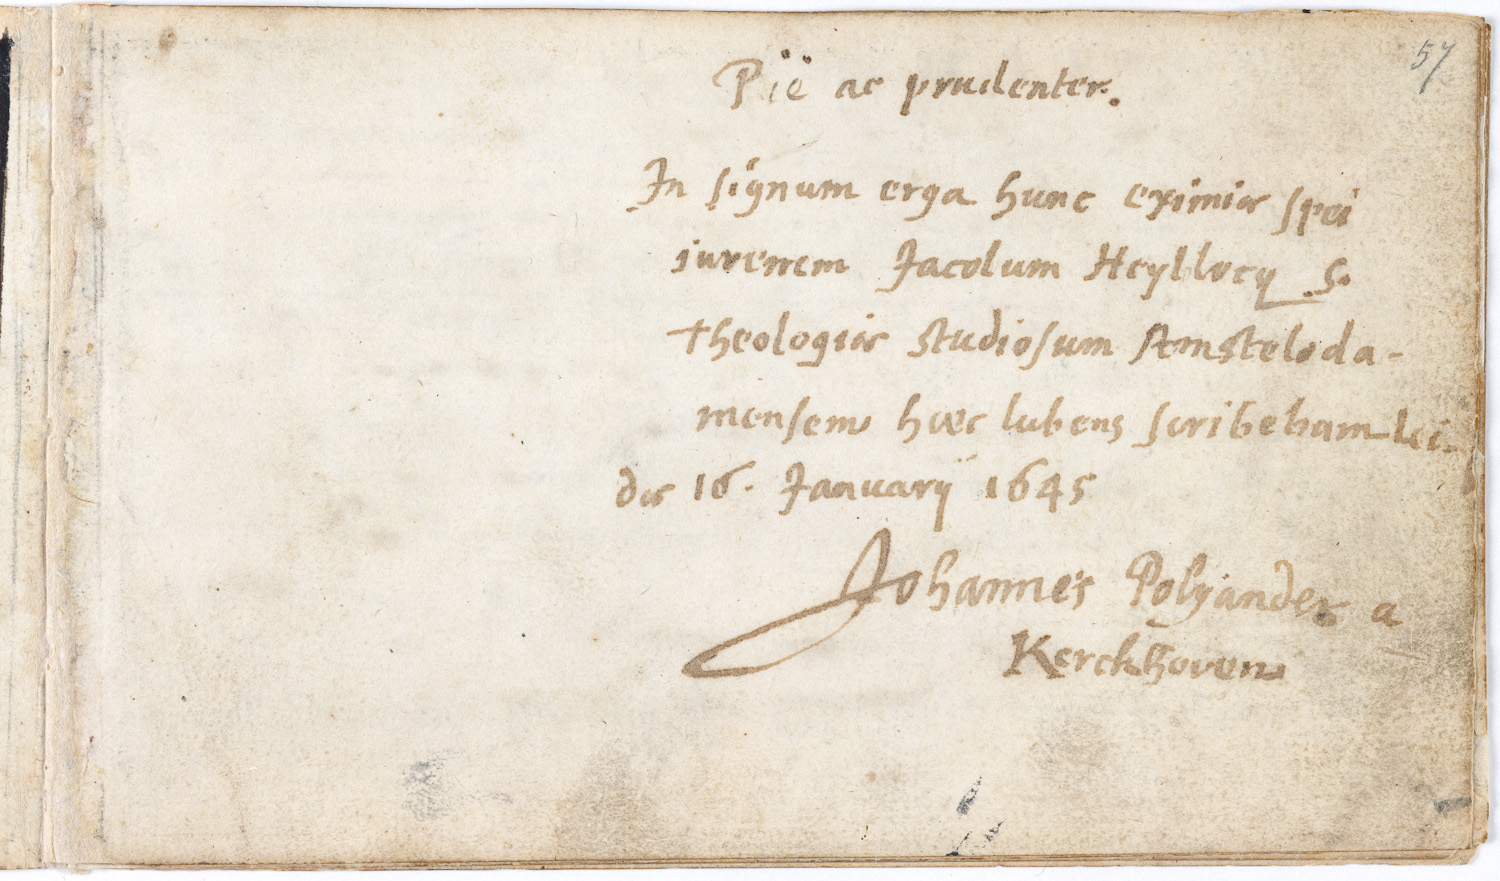 57
Pïe ac prudenter.
In signum erga hunc eximiæ spei
iuvenem Jacobum Heyblocq S.
theologiæ studiosum Amsteloda-
mensem hæc lubens scribebam Lei-
dæ 16. Januarÿ 1645
Johannes Polyander a
Kerckhoven